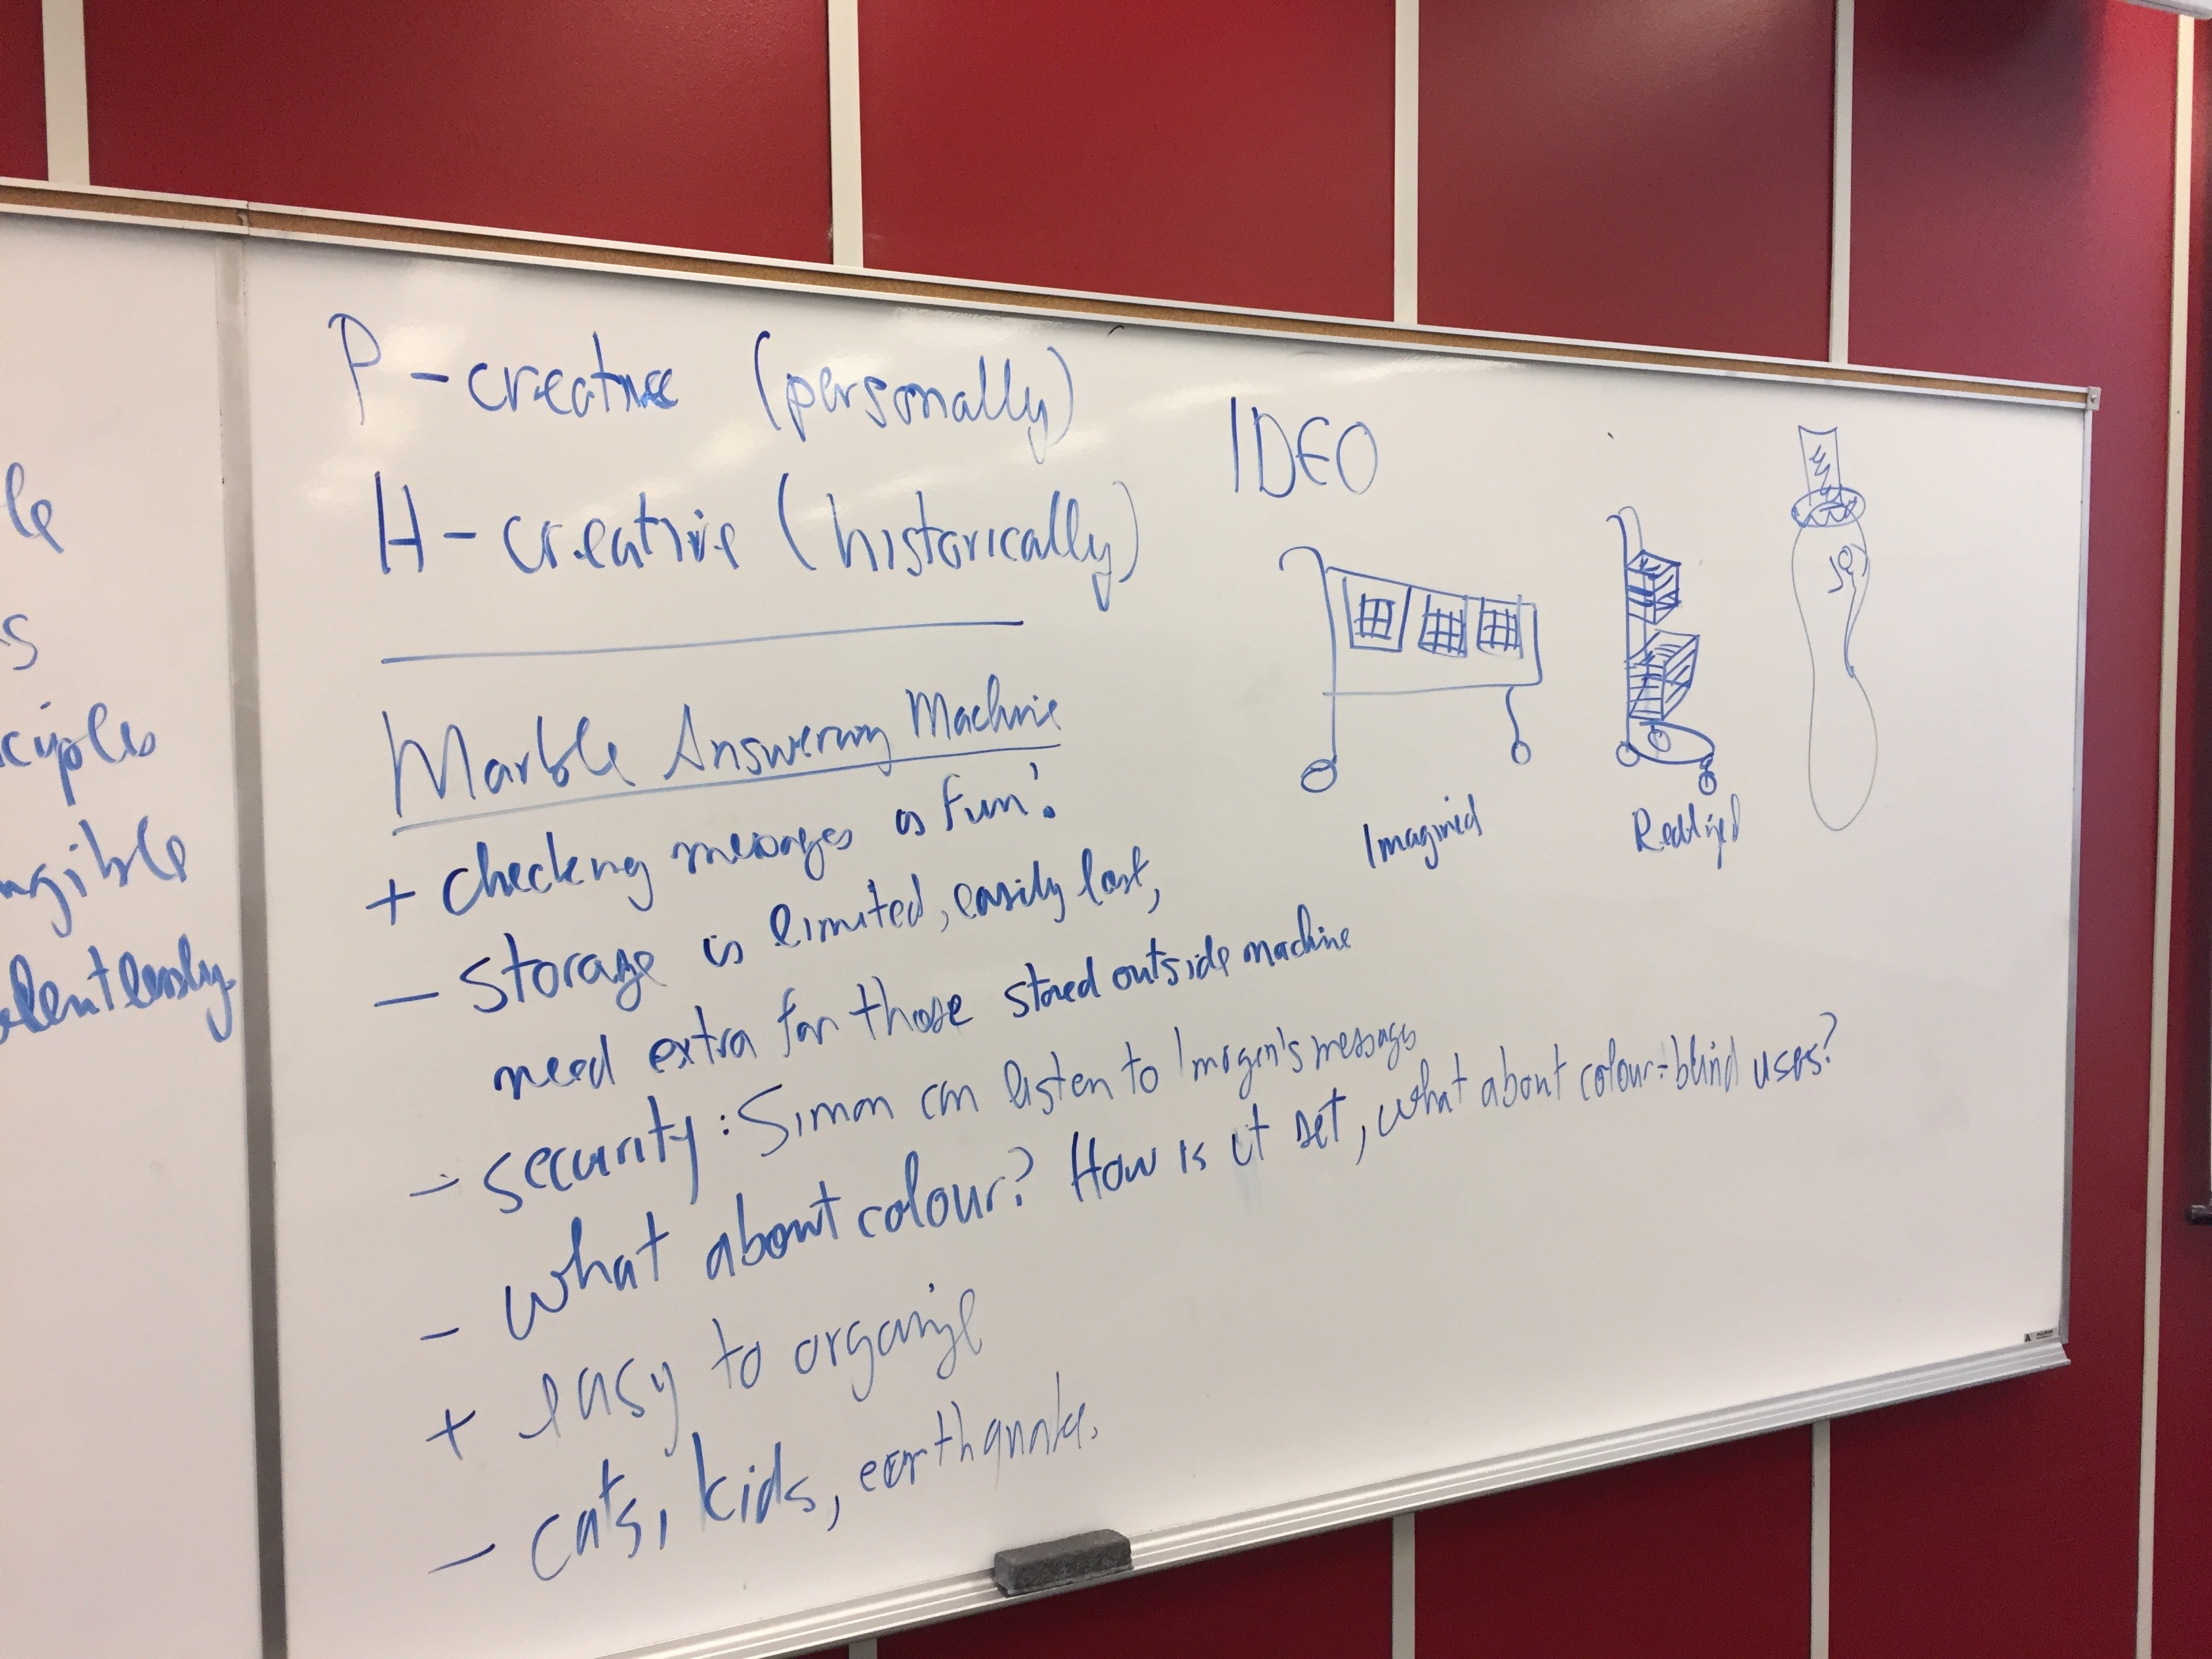 P-creative (personally)
H-creative (historically)
Marble Answering Machine
+ checking messages is fun!
- storage is limited, easily lost,
need extra for those stored outside machine
- security: Simon can listen to Imogen's messages
- what about colour? How is it set, what about colour-blind uses?
+ easy to organize
- cats, kids, earthquake.
IDEO
Imagined
Realized
le
s
ciples
ngible
lentlessly